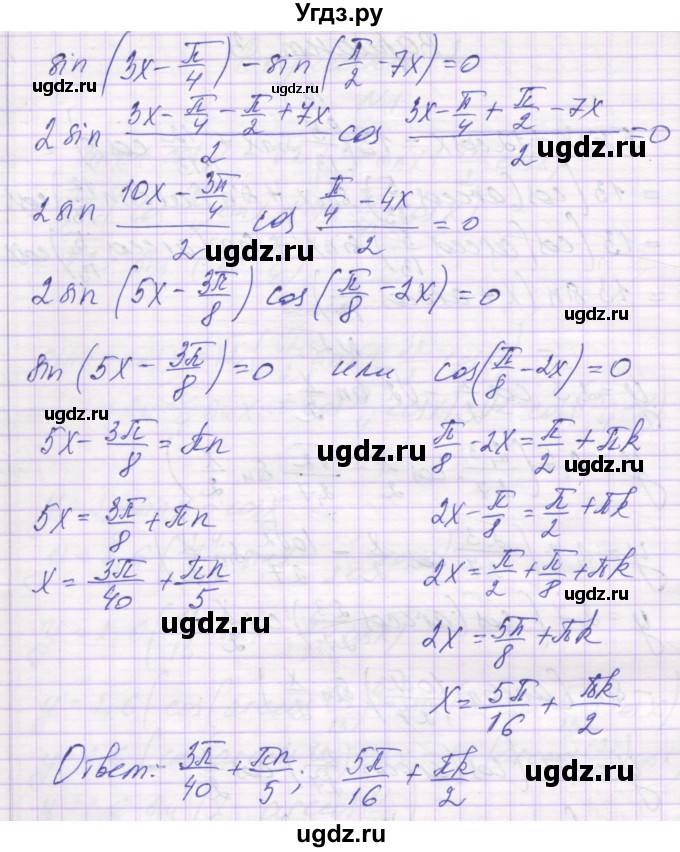 Угдз.ру
sin(3x - π/4) - sin(π/2 - 7x) = 0
ugdz.ru ugdz.ru
2 sin (3x - π/4 - π/2 + 7x)/2 cos (3x - π/4 + π/2 - 7x)/2 = 0
ugdz.ru
2 sin (10x - 3π/4)/2 cos (π/4 - 4x)/2 = 0
ugdz.ru
2 sin (5x - 3π/8) cos(π/8 - 2x) = 0
ugdz.ru ugdz.ru
sin(5x - 3π/8) = 0 или cos(π/8 - 2x) = 0
ugdz.ru ugdz.ru
5x - 3π/8 = πn π/8 - 2x = π/2 + πk
ugdz.ru ugdz.ru
5x = 3π/8 + πn 2x - π/8 = π/2 + πk
ugdz.ru
x = 3π/40 + πn/5 2x = π/2 + π/8 + πk
ugdz.ru ugdz.ru
2x = 5π/8 + πk
ugdz.ru
x = 5π/16 + πk/2
ugdz.ru
Ответ: 3π/40 + πn/5; 5π/16 + πk/2
ugdz.ru ugdz.ru
ugdz.ru